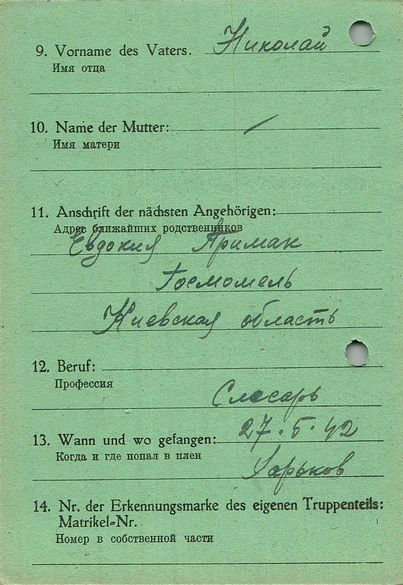 9. Vorname des Vaters. Николай
Имя отца
10. Name der Mutter: —
Имя матери
11. Anschrift der nächsten Angehörigen:
Адрес ближайших родственников
Евдокия Примак
Гостомель
Киевская область
12. Beruf:
Профессия
Слесарь
13. Wann und wo gefangen: 27.5.42
Когда и где попал в плен
Харьков
14. Nr. der Erkennungsmarke des eigenen Truppenteils:
Matrikel-Nr.
Номер в собственной части